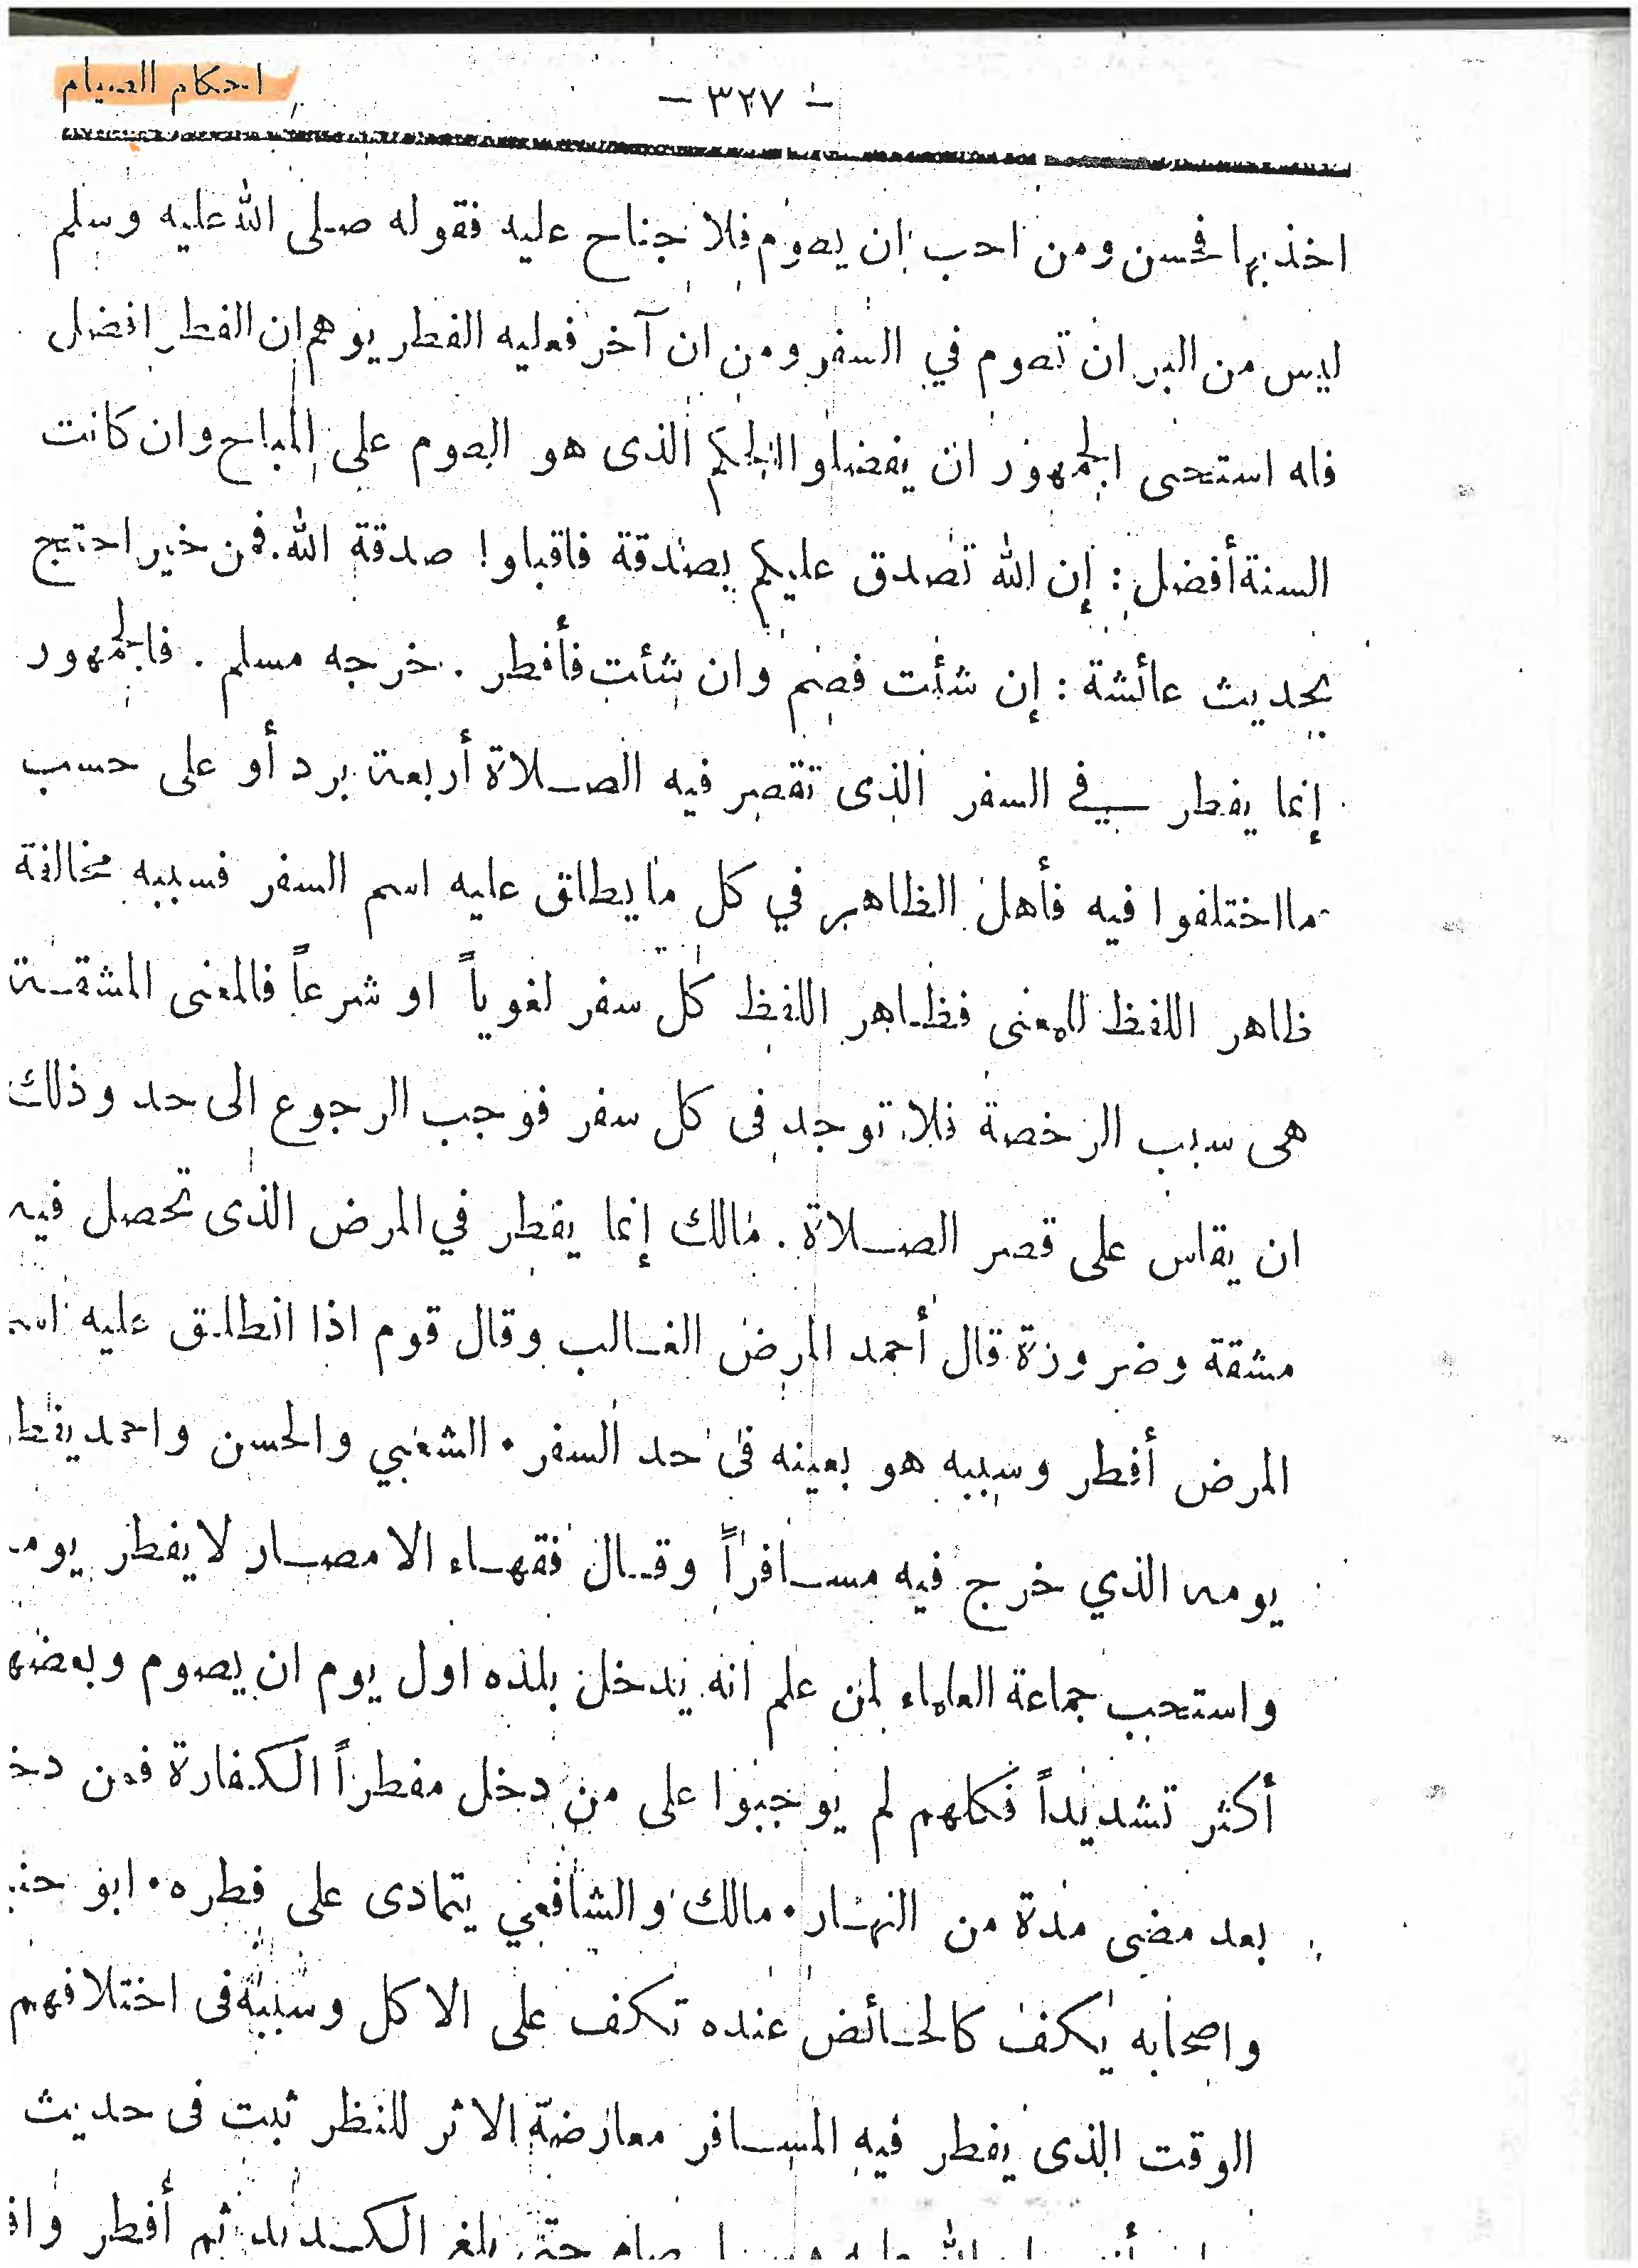 احكام الصيام
— ٣٢٧ —
اخذ بها فحسن ومن احب ان يصوم فلا جناح عليه فقوله صلى الله عليه وسلم
ليس من البر ان تصوم في السفر ومن ان آخر فعليه الفطر يوهم ان الفطر افضل
فله استحى الجمهور ان يفضلوا الحكم الذى هو الصوم على المباح وان كانت
السنة أفضل : إن الله تصدق عليكم بصدقة فاقبلوا صدقة الله. فمن خير احتج
بحديث عائشة : إن شئت فصم وان شئت فأفطر . خرجه مسلم . فالجمهور
إنما يفطر في السفر الذى تقصر فيه الصلاة أربعة برد أو على حسب
ما اختلفوا فيه فأهل الظاهر في كل ما يطلق عليه اسم السفر فسببه مخالفة
ظاهر اللفظ للمعنى فظاهر اللفظ كل سفر لغوياً او شرعاً فالمعنى المشقة
هى سبب الرخصة فلا توجد فى كل سفر فوجب الرجوع الى حد وذلك
ان يقاس على قصر الصلاة . مالك إنما يفطر في المرض الذى تحصل فيه
مشقة وضرورة قال أحمد المرض الغالب وقال قوم اذا انطلق عليه
المرض أفطر وسببه هو بعينه فى حد السفر • الشعبي والحسن واحمد يفطر
يومه الذي خرج فيه مسافراً وقال فقهاء الامصار لا يفطر
واستحب جماعة العلماء لمن علم انه يدخل بلده اول يوم ان يصوم
أكثر تشديداً فكلهم لم يوجبوا على من دخل مفطراً الكفارة فمن
بعد مضى مدة من النهار • مالك والشافعي يتمادى على فطره • ابو
واصحابه يكف كالحائض عنده تكف على الاكل وسببه فى اختلافهم
الوقت الذى يفطر فيه المسافر معارضة الاثر للنظر ثبت فى حديث
الله عليه صام حتى بلغ الكديد ثم أفطر